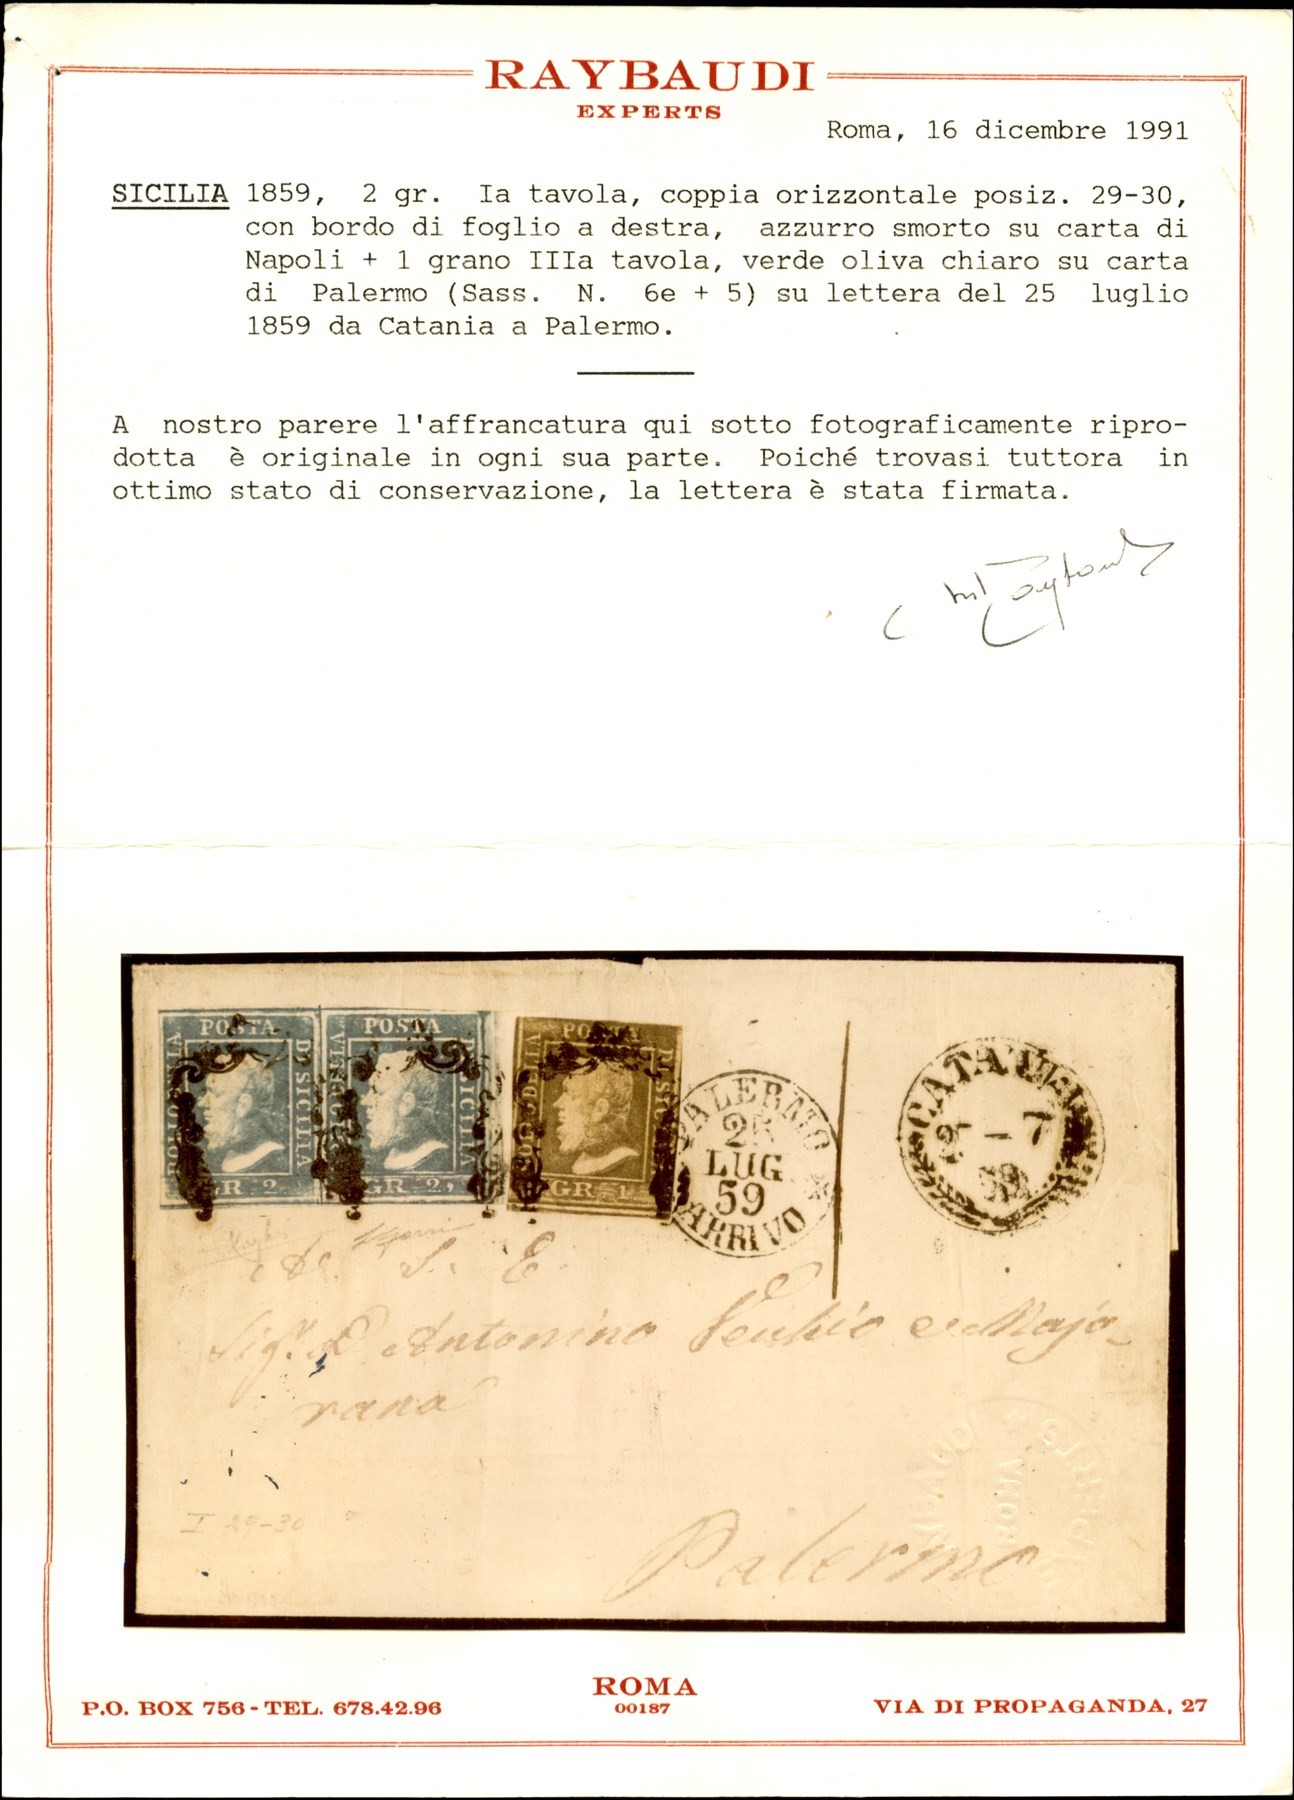 RAYBAUDI
EXPERTS
Roma, 16 dicembre 1991
SICILIA 1859, 2 gr. Ia tavola, coppia orizzontale posiz. 29-30,
con bordo di foglio a destra, azzurro smorto su carta di
Napoli + 1 grano IIIa tavola, verde oliva chiaro su carta
di Palermo (Sass. N. 6e + 5) su lettera del 25 luglio
1859 da Catania a Palermo.
A nostro parere l'affrancatura qui sotto fotograficamente ripro-
dotta è originale in ogni sua parte. Poiché trovasi tuttora in
ottimo stato di conservazione, la lettera è stata firmata.
POSTA
BOLLO DELLA
DI SICILIA
GR. 2,
POSTA
BOLLO DELLA
DI SICILIA
GR. 2,
POSTA
GR. 1
PALERMO
LUG
59
ARRIVO
CATA
7
A S. E.
Sig. D. Antonino
Majo-
rana
I 29-30
Palermo
ROMA
EXPERTS
P.O. BOX 756 - TEL. 678.42.96
ROMA
00187
VIA DI PROPAGANDA, 27